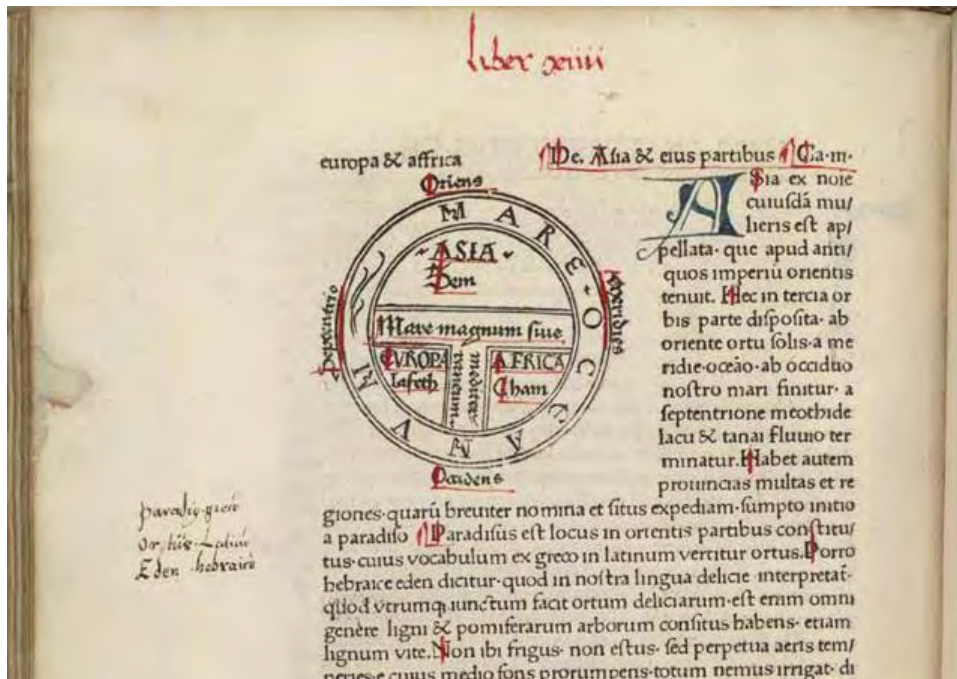 liber xiiii
europa & affrica
De. Asia & eius partibus Ca·m·
Oriens
MARE OCCEANVM
Septentrio
Meridies
ASIA
Sem
Mare magnum siue
mediterraneum
EVROPA
Iafeth
AFRICA
Cham
Occidens
ASia ex noīe
cuiusdā mu/
lieris est ap/
pellata· que apud anti/
quos imperiū orientis
tenuit. Hec in tercia or
bis parte disposita· ab
oriente ortu solis·a me
ridie·oceāo·ab occiduo
nostro mari finitur· a
septentrione meothide
lacu & tanai fluuio ter
minatur.Habet autem
prouincias multas et re
giones·quarū breuiter nomina et situs expediam·sumpto initio
a paradiso Paradisus est locus in orientis partibus constitu/
tus·cuius vocabulum ex greco in latinum vertitur ortus.Porro
hebraice eden dicitur·quod in nostra lingua delicie interpretat̄·
quod vtrumqꝫ iunctum facit ortum deliciarum·est enim omni
genere ligni & pomiferarum arborum consitus habens· etiam
lignum vite.Non ibi frigus· non estus· sed perpetua aeris tem/
peries·e cuius medio fons prorumpens·totum nemus irrigat· di
Eden hebraice